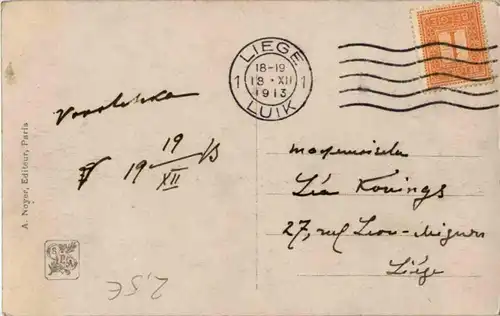 LIEGE
18-19
1 18·XII 1
1913
LUIK
19 19/XII 13
Mademoiselle
Léa Konings
27, rue Léon-Mignon
Liége
A. Noyer, Editeur, Paris
2,5€